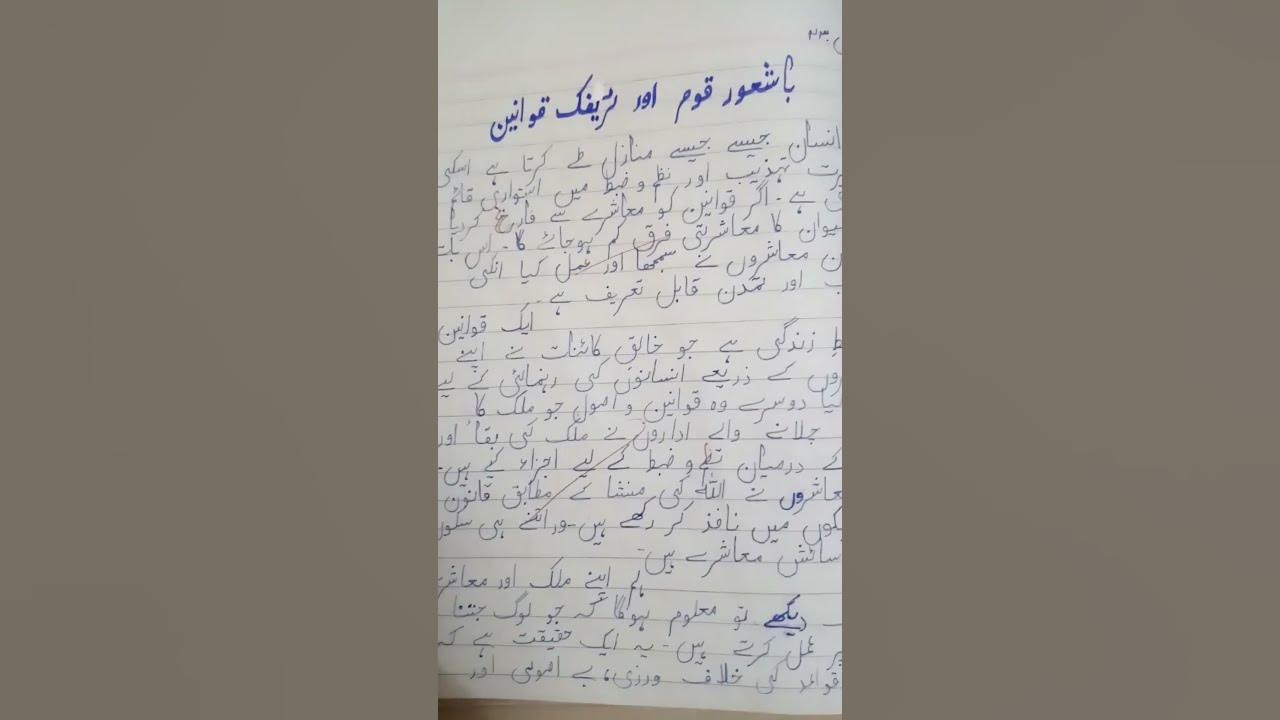 باشعور قوم اور ٹریفک قوانین
انسان جیسے جیسے منازل طے کرتا ہے اسکی
تہذیب اور نظم و ضبط میں استواری قائم
ہے۔ اگر قوانین کو معاشرے سے خارج کردیا
کا معاشرتی فرق کم ہوجائے گا۔ اس بات
معاشروں نے سمجھا اور عمل کیا انکی
اور تمدن قابل تعریف ہے۔
ایک قوانین
زندگی ہے جو خالق کائنات نے اپنے
کے ذریعے انسانوں کی رہنمائی کے لیے
دوسرے وہ قوانین و اصول جو ملک کا
چلانے والے اداروں نے ملک کی بقاء اور
کے درمیان نظم و ضبط کے لیے اجراء کیے ہیں۔
نے اللہ کی منشا کے مطابق قانون
میں نافذ کر رکھے ہیں۔ ور اتنے ہی سکون
معاشرے ہیں۔
ہم اپنے ملک اور
دیکھے تو معلوم ہوگا کہ جو لوگ جتنا
پر عمل کرتے ہیں۔ یہ ایک حقیقت ہے کہ
قواعد کی خلاف ورزی، بے اصولی اور